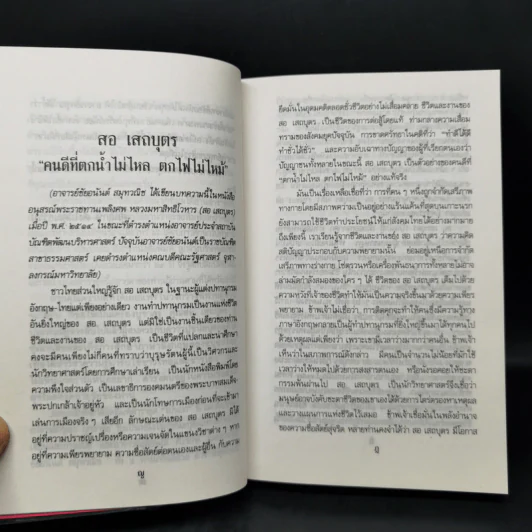 สอ เสถบุตร
“คนดีที่ตกน้ำไม่ไหล ตกไฟไม่ไหม้”
(อาจารย์ชัยอนันต์ สมุทวณิช ได้เขียนบทความนี้ในหนังสือ
อนุสรณ์พระราชทานเพลิงศพ หลวงมหาสิทธิโวหาร (สอ เสถบุตร)
เมื่อปี พ.ศ. ๒๕๑๔ ในขณะที่ดำรงตำแหน่งอาจารย์ประจำสถาบัน
บัณฑิตพัฒนบริหารศาสตร์ ปัจจุบันอาจารย์ชัยอนันต์เป็นราชบัณฑิต
สาขาธรรมศาสตร์ เคยดำรงตำแหน่งคณบดีคณะรัฐศาสตร์ จุฬา-
ลงกรณ์มหาวิทยาลัย)
ชาวไทยส่วนใหญ่รู้จัก สอ เสถบุตร ในฐานะผู้แต่งปทานุกรม
อังกฤษ-ไทยแต่เพียงอย่างเดียว งานทำปทานุกรมเป็นงานแห่งชีวิต
อันยิ่งใหญ่ของ สอ เสถบุตร แต่มิใช่เป็นงานชิ้นเดียวของท่าน
ชีวิตและงานของ สอ เสถบุตร เป็นชีวิตที่แปลกและน่าศึกษา
คงจะมีคนเพียงไม่กี่คนที่ทราบว่าบุรุษรัตนผู้นี้เป็นวิศวกรและ
นักวิทยาศาสตร์โดยการศึกษาเล่าเรียน เป็นนักหนังสือพิมพ์โดย
ความพึงใจส่วนตัว เป็นเลขาธิการองคมนตรีของพระบาทสมเด็จ
พระปกเกล้าเจ้าอยู่หัว และเป็นนักโทษการเมืองก่อนที่จะเข้ามา
เล่นการเมืองจริง ๆ เสียอีก ลักษณะเด่นของ สอ เสถบุตร มิได้
อยู่ที่ความปราชญ์เปรื่องหรือความเจนจัดในแขนงวิชาต่าง ๆ หาก
อยู่ที่ความเพียรพยายาม ความซื่อสัตย์ต่อตนเองและผู้อื่น กับความ
ญ
ยึดมั่นในอุดมคติตลอดชั่วชีวิตอย่างไม่เสื่อมคลาย ชีวิตและงานของ
สอ เสถบุตร เป็นชีวิตของการต่อสู้โดยแท้ ท่ามกลางความเสื่อม
ทรามของสังคมยุคปัจจุบัน การขาดศรัทธาในคติที่ว่า “ทำดีได้ดี
ทำชั่วได้ชั่ว” และความอับเฉาทางปัญญาของผู้ที่เรียกตนเองว่า
ปัญญาชนทั้งหลายในขณะนี้ สอ เสถบุตร เป็นตัวอย่างของคนดีที่
“ตกน้ำไม่ไหล ตกไฟไม่ไหม้” อย่างแท้จริง
มันเป็นเรื่องเหลือเชื่อที่ว่า การที่คน ๆ หนึ่งถูกจำกัดเสรีภาพ
ทางกายโดยมีสภาพความเป็นอยู่อย่างต่ำที่สุดบนเกาะกันดารแรก
ยังสามารถใช้ชีวิตทำประโยชน์ให้แก่สังคมไทยได้อย่างมากมาย
ถึงเพียงนี้ เราเรียนรู้จากชีวิตและงานของ สอ เสถบุตร ว่าความคิด
สติปัญญาประกอบกับความพยายามนั้น ย่อมอยู่เหนือการจำกัด
เสรีภาพทางร่างกาย โซ่ตรวนหรือเครื่องพันธนาการทั้งหลายไม่อาจ
ล่ามมัดกำลังสมองของใคร ๆ ได้ ชีวิตของ สอ เสถบุตร เต็มไปด้วย
ความหวังที่เจ้าของชีวิตทำให้มันเป็นความจริงขึ้นมาด้วยความเพียร
พยายาม ข้าพเจ้าไม่เชื่อว่า การติดคุกจะทำให้คนซึ่งมีความรู้ทาง
ภาษาอังกฤษกลายเป็นผู้ทำปทานุกรมที่ยิ่งใหญ่ขึ้นมาได้ทุกคนไป
ด้วยเหตุผลแต่เพียงว่า เพราะเขามีเวลาว่างมากกว่าคนอื่น ข้าพเจ้า
เห็นว่าในสภาพการณ์ดังกล่าว มีคนเป็นจำนวนไม่น้อยที่มักใช้
เวลาว่างให้หมดไปด้วยการสงสารตนเอง หรือนั่งรอคอยให้ชะตา
กรรมพ้นผ่านไป สอ เสถบุตร เป็นนักวิทยาศาสตร์จึงเชื่อว่า
มนุษย์อาจบังคับชะตาชีวิตของเขาเองได้ด้วยการใคร่ครวญหาเหตุผล
และวางแผนการแห่งชีวิตไว้เสมอ ข้าพเจ้าเชื่อมั่นในพลังอำนาจ
ของความซื่อสัตย์สุจริต หลายท่านคงจำได้ว่า สอ เสถบุตร มีโอกาส
ฎ